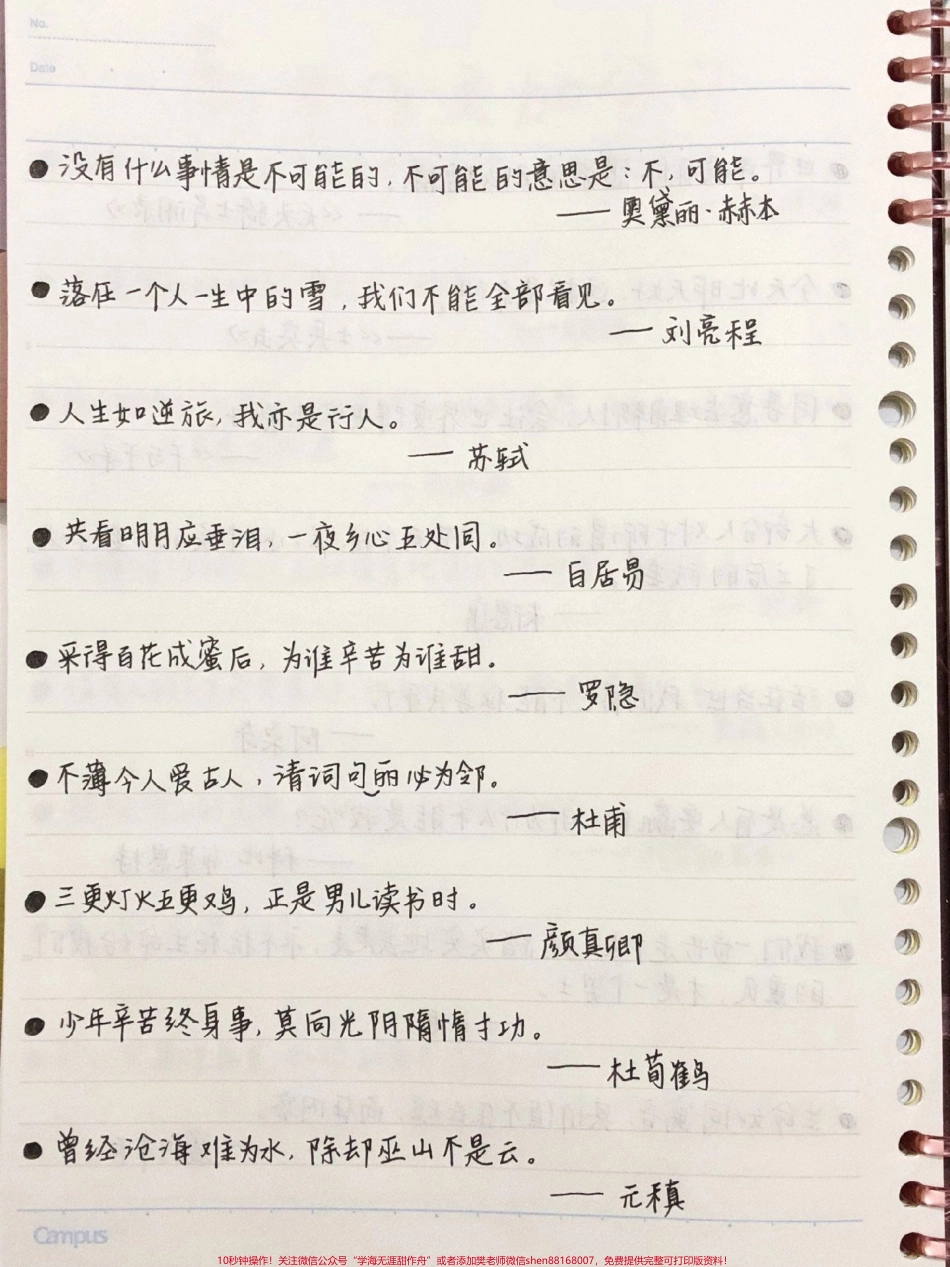 No.
Date
●没有什么事情是不可能的,不可能的意思是:不,可能。
——奥黛丽·赫本
●落在一个人一生中的雪,我们不能全部看见。
——刘亮程
●人生如逆旅,我亦是行人。
——苏轼
●共看明月应垂泪,一夜乡心五处同。
——白居易
●采得百花成蜜后,为谁辛苦为谁甜。
——罗隐
●不薄今人爱古人,清词句丽必为邻。
——杜甫
●三更灯火五更鸡,正是男儿读书时。
——颜真卿
●少年辛苦终身事,莫向光阴隋惰寸功。
——杜荀鹤
●曾经沧海难为水,除却巫山不是云。
——元稹
Campus
10秒钟操作!关注微信公众号“学海无涯甜作舟”或者添加樊老师微信shen88168007,免费提供完整可打印版资料!